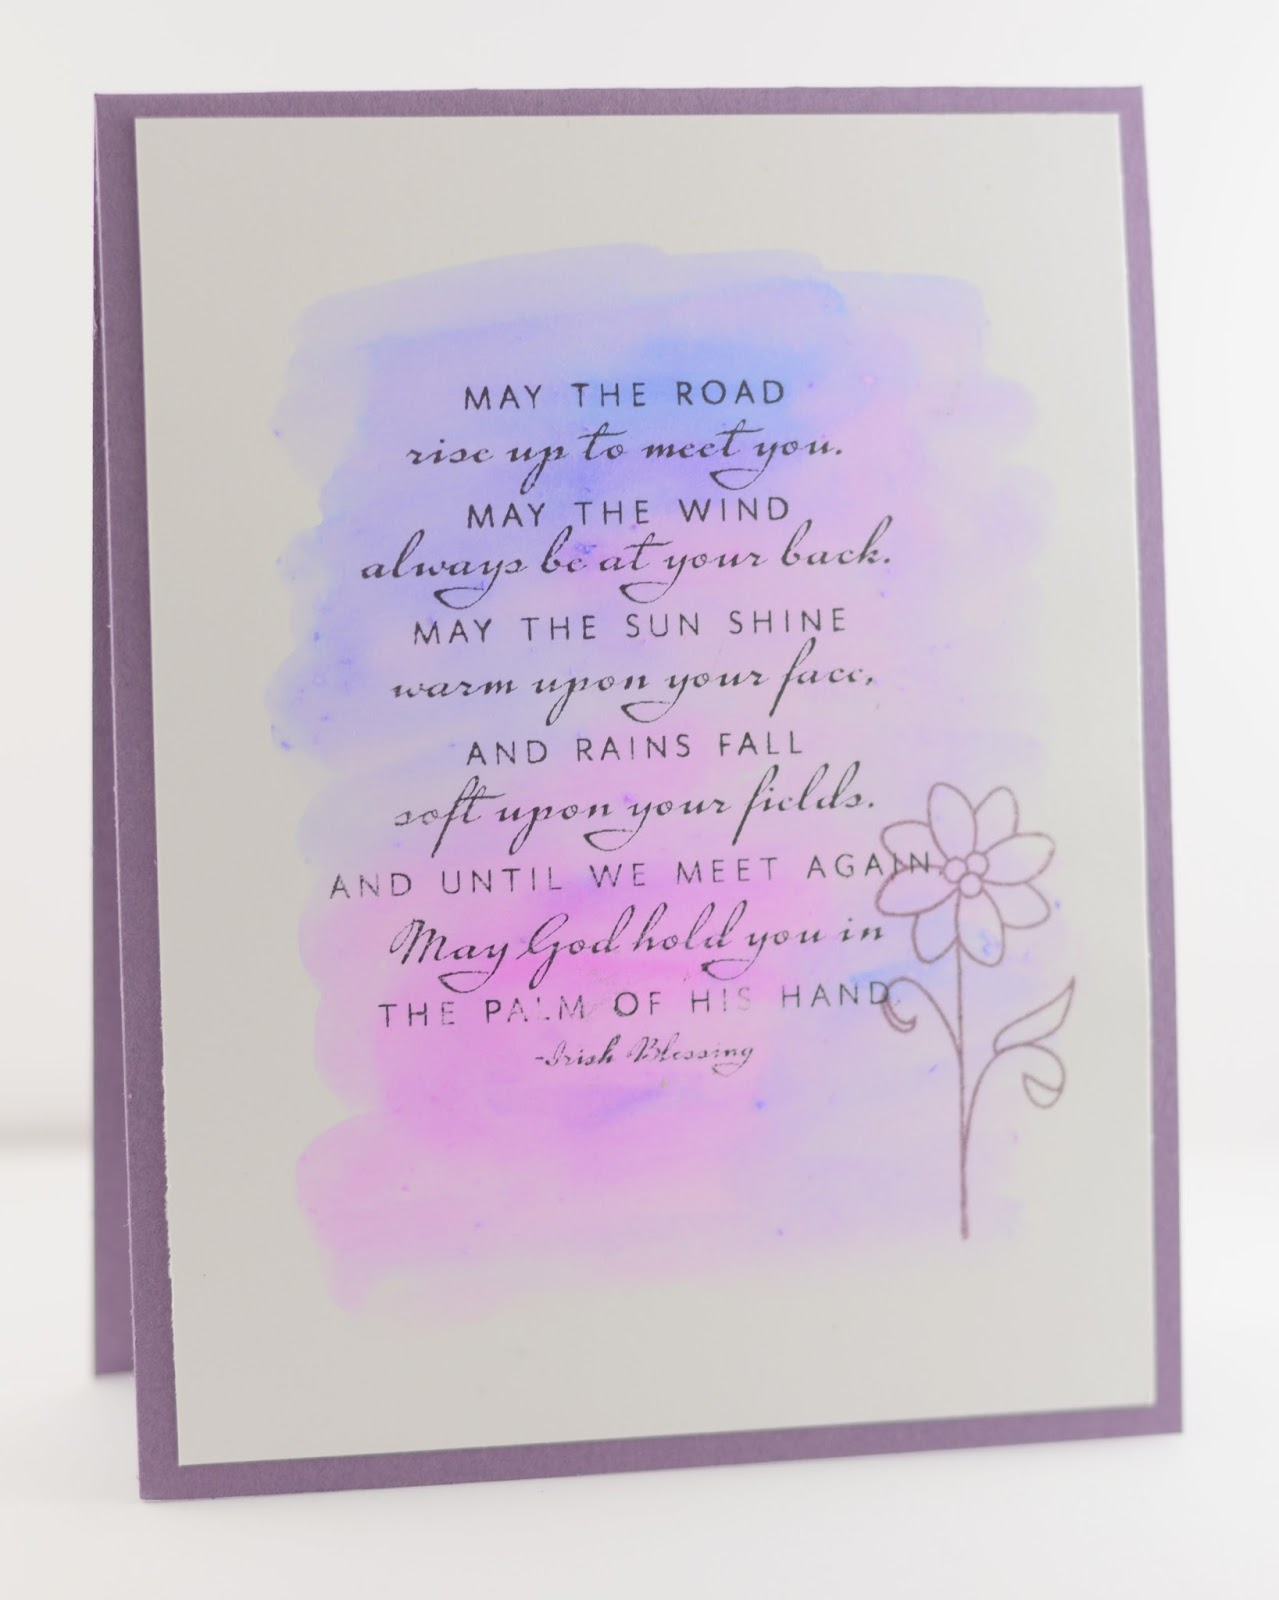 MAY THE ROAD
rise up to meet you.
MAY THE WIND
always be at your back.
MAY THE SUN SHINE
warm upon your face,
AND RAINS FALL
soft upon your fields.
AND UNTIL WE MEET AGAIN,
May God hold you in
THE PALM OF HIS HAND.
-Irish Blessing